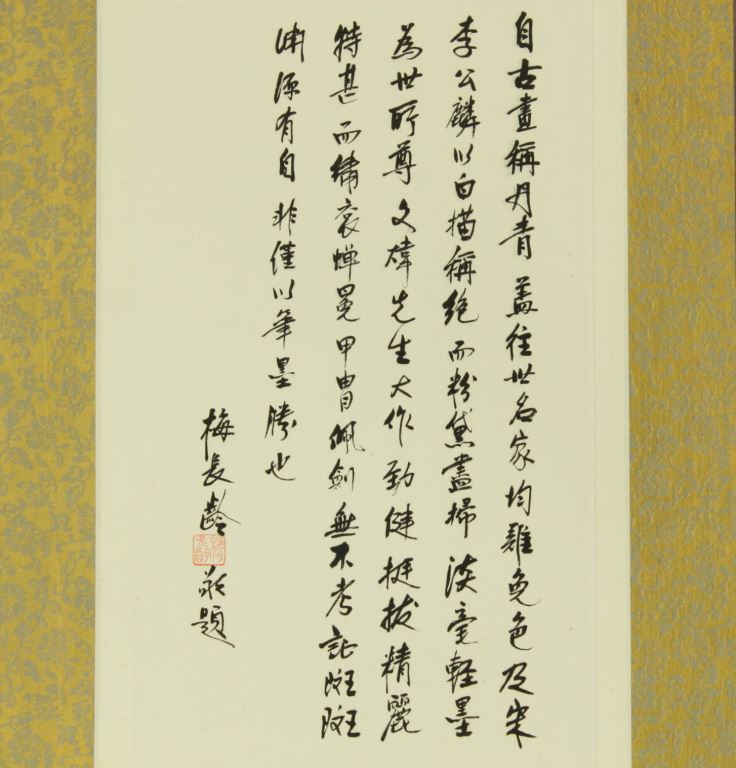 自古畫稱丹青蓋往世名家均難免色及宋
李公麟以白描稱絕而粉黛盡掃淡毫輕墨
為世所尊文煒先生大作勁健挺拔精麗
特甚而繡袞蟬冕甲冑佩劍無不考訂斑斑
淵源有自非僅以筆墨勝也
梅長齡
敬題